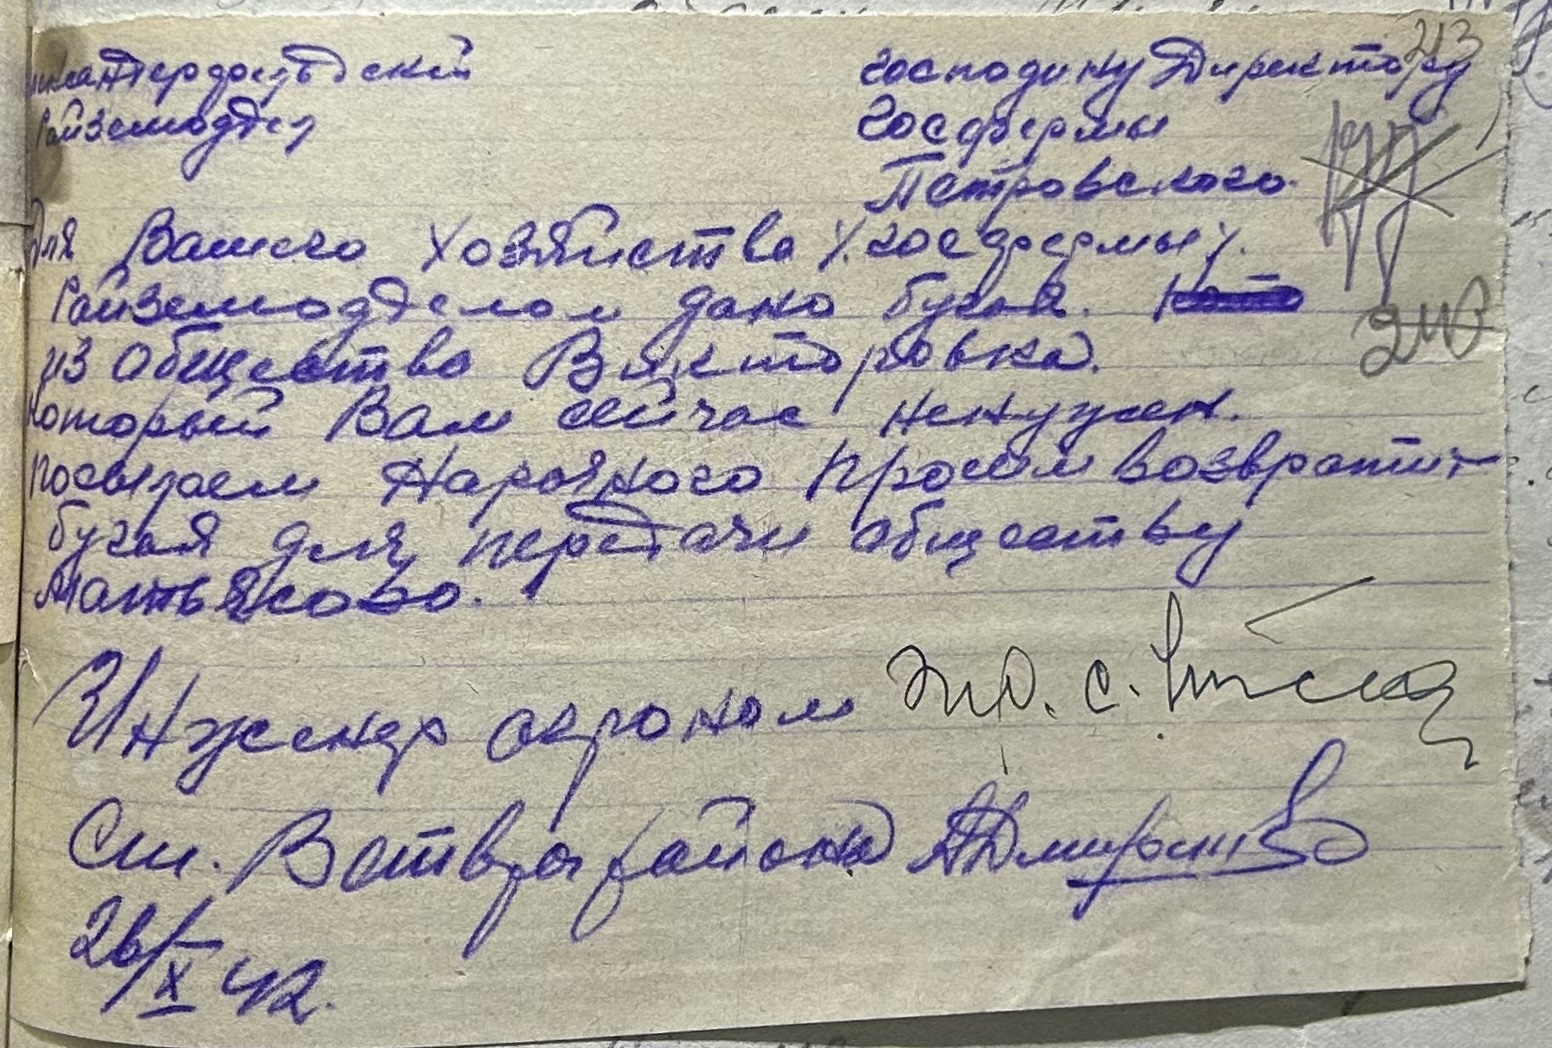 господину Директору
Райземотдел
Госфермы
Петровского.
Для Вашего хозяйства /.госфермы/.
Райземотделом дано бугая.
из общества Викторовка.
который Вам сейчас ненужен.
посылаем Нарочного просим возвратит
бугая для передачи обществу
Матьясово.
Инженер агроном
Ст. Ветврач района
26/X 42.